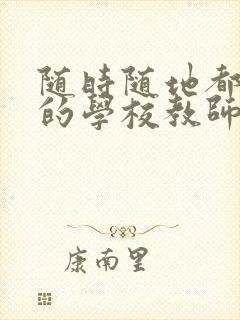 随時随地都
的學校教師
康南里